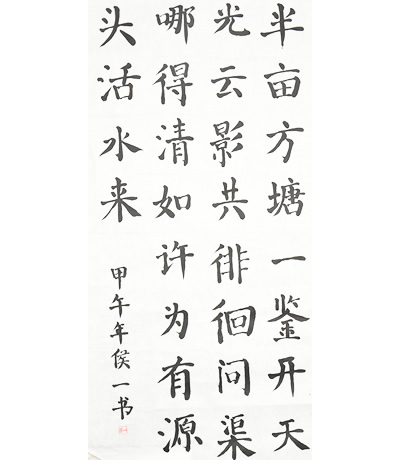 半亩方塘一鉴开天
光云影共徘徊问渠
哪得清如许为有源
头活水来
甲午年侯一书